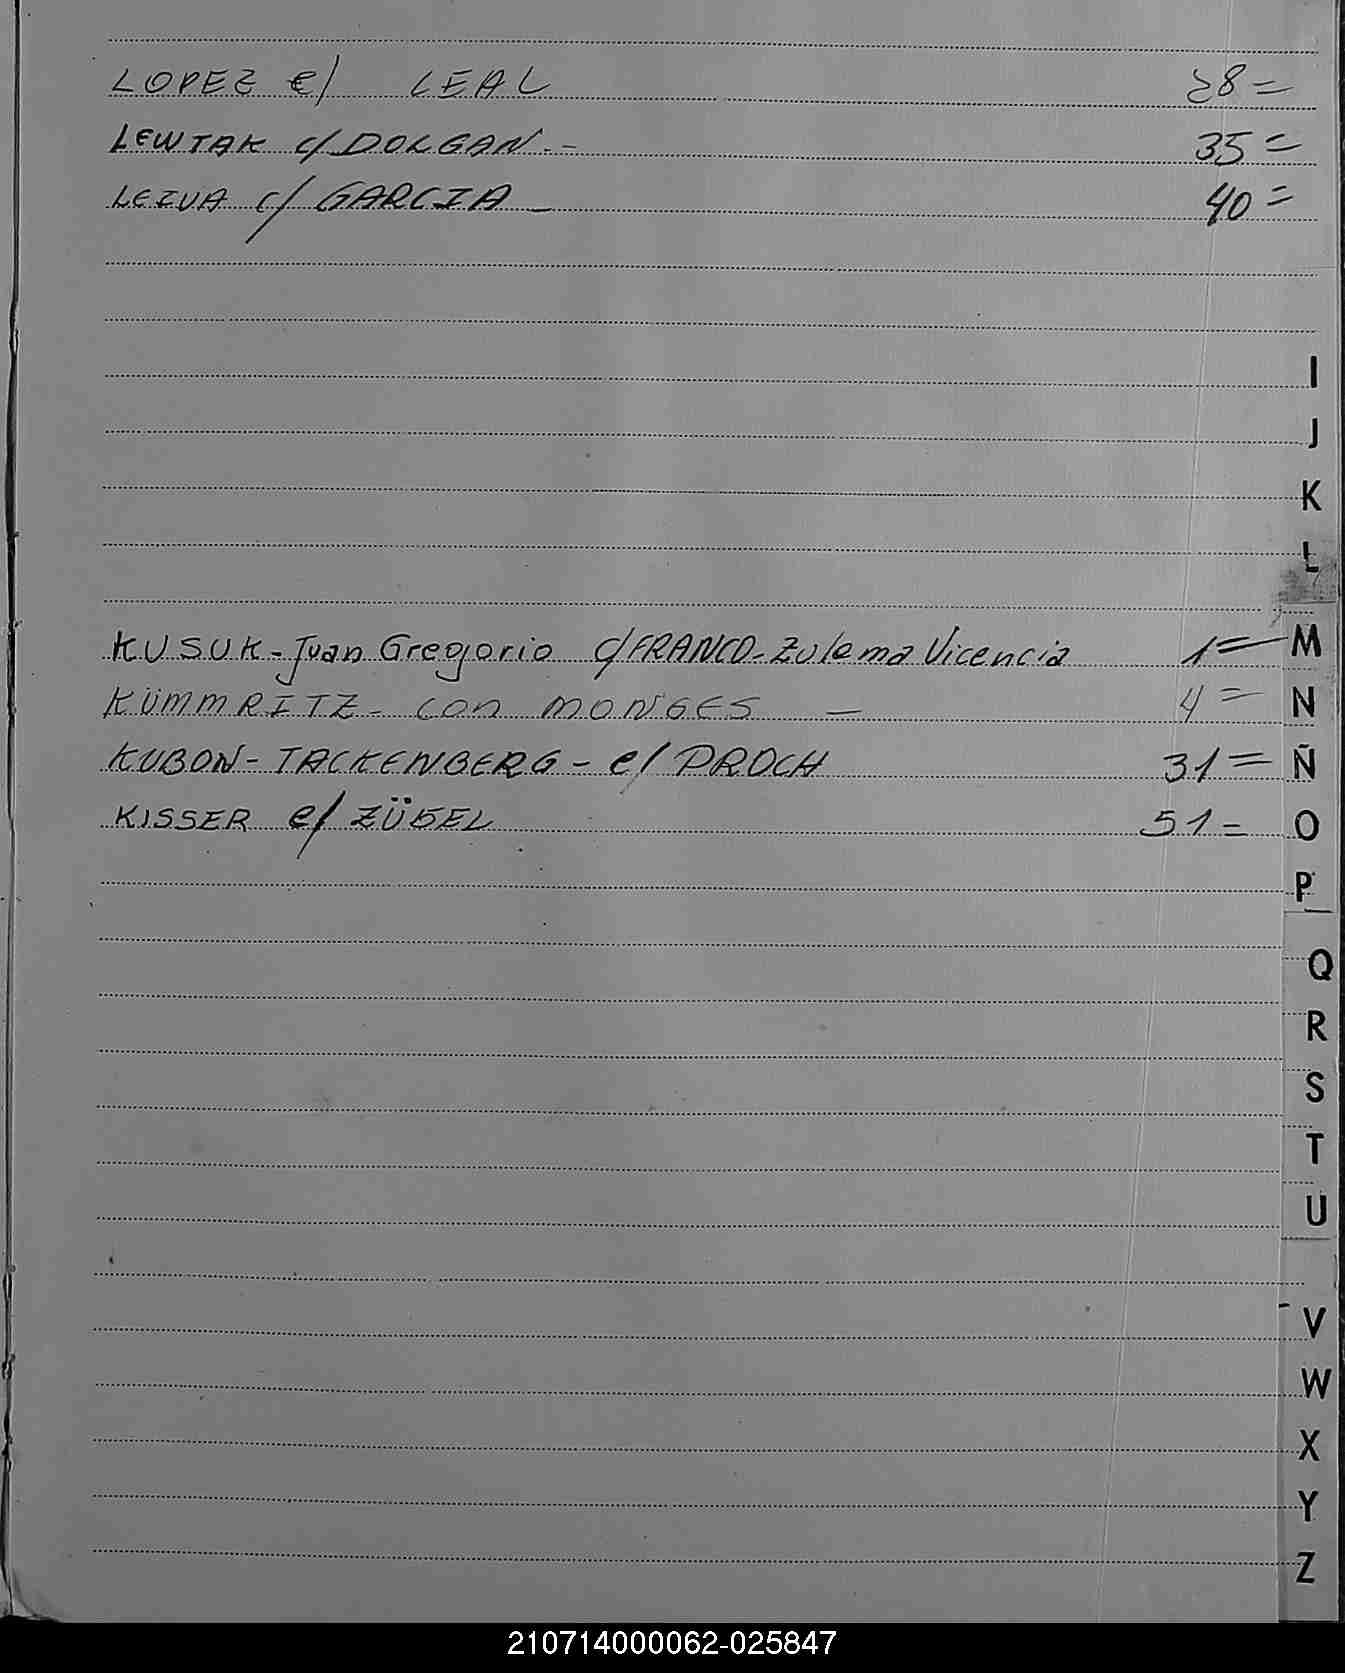 LOPEZ c/ LEAL 28=
LEWTAK c/ DOLGAN.- 35=
LEIVA c/ GARCIA - 40=
I
J
K
L
KUSUK-Juan Gregorio c/FRANCO-Zulema Vicencia 1= M
KÜMMRITZ- con MONGES - 4= N
KUBON-TACKENBERG - c/ PROCH 31= Ñ
KISSER c/ 51= O
P
Q
R
S
T
U
V
W
X
Y
Z
210714000062-025847